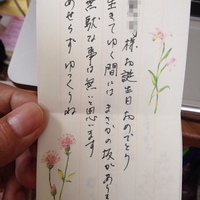 様 お誕生日おめでとう
生きてゆく間には まさかの坂があり
無駄な事は無いと思います
あせらず ゆっくりね